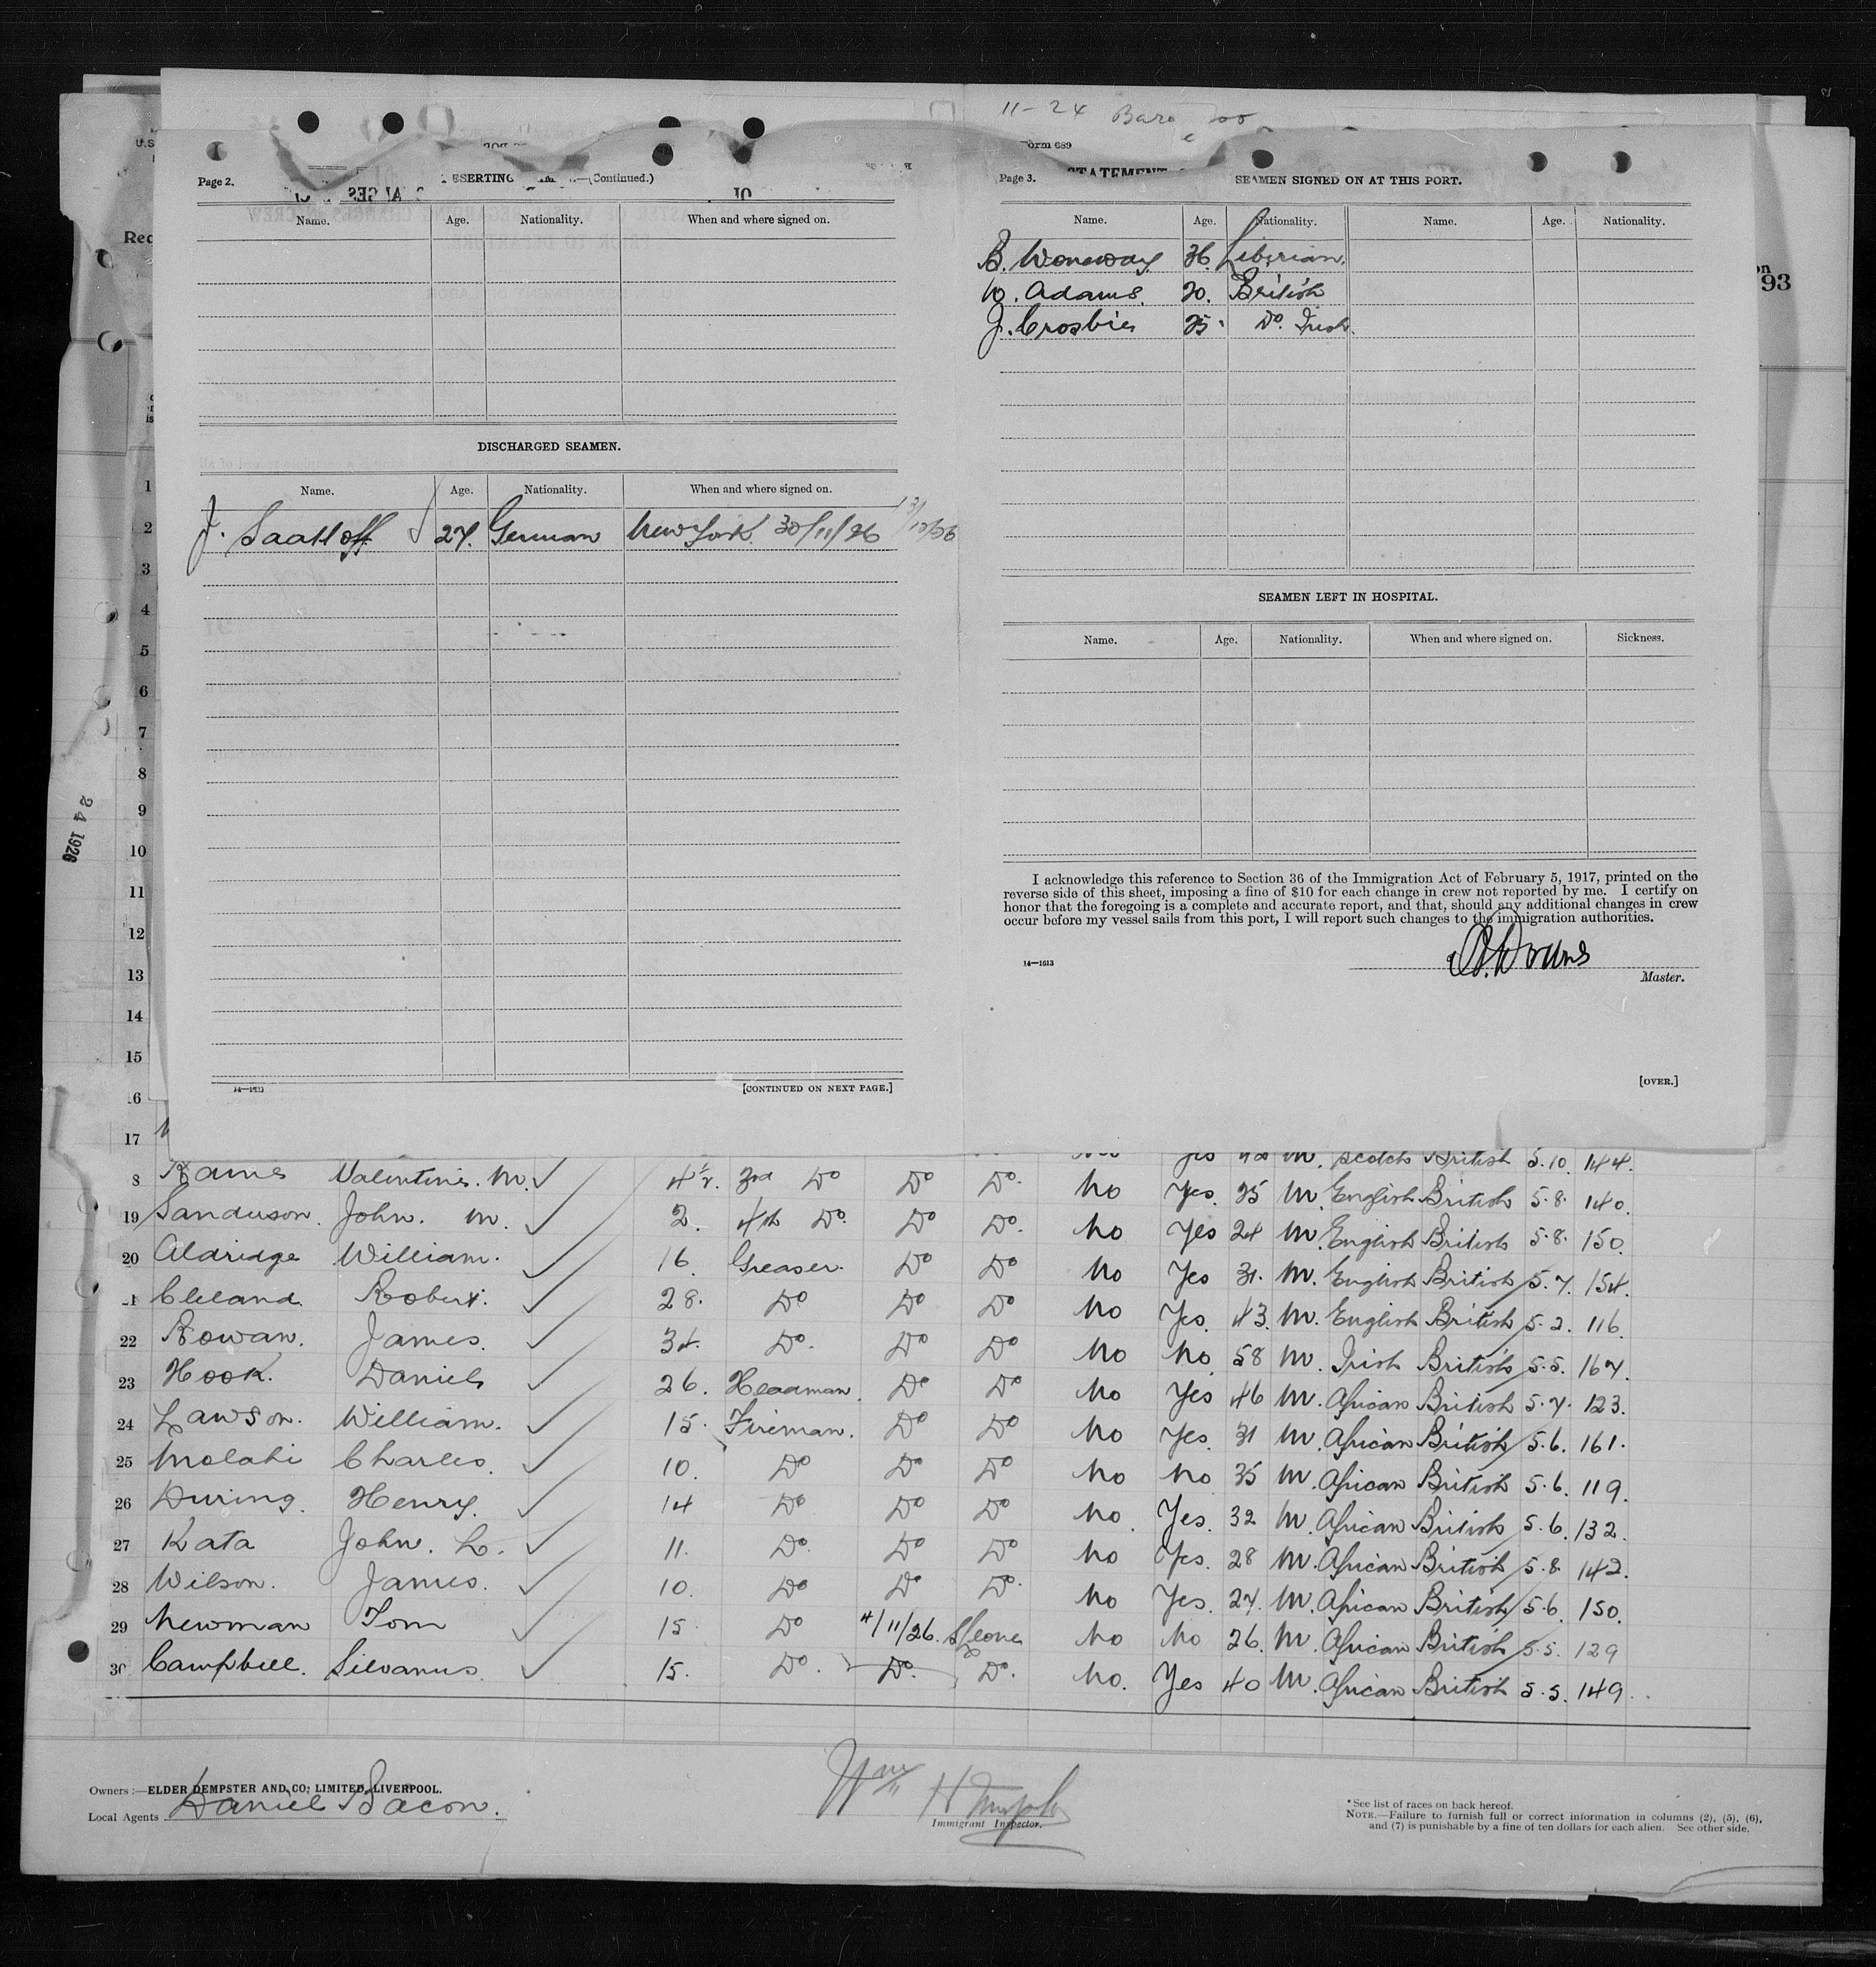 11-24 Bara
Form 689
Page 2.
DESERTING —(Continued.)
Name. Age. Nationality. When and where signed on.
DISCHARGED SEAMEN.
Name. Age. Nationality. When and where signed on.
J. Saathoff 27. German New York. 30/11/26
14—1613
[CONTINUED ON NEXT PAGE.]
Page 3.
STATEMENT
SEAMEN SIGNED ON AT THIS PORT.
Name. Age. Nationality. Name. Age. Nationality.
B. Woneway. 36. Liberian.
W. Adams. 20. British
J. Crosbie 25. Do. Irish.
SEAMEN LEFT IN HOSPITAL.
Name. Age. Nationality. When and where signed on. Sickness.
I acknowledge this reference to Section 36 of the Immigration Act of February 5, 1917, printed on the
reverse side of this sheet, imposing a fine of $10 for each change in crew not reported by me. I certify on
honor that the foregoing is a complete and accurate report, and that, should any additional changes in crew
occur before my vessel sails from this port, I will report such changes to the immigration authorities.
Downs
14—1613
Master.
[OVER.]
93
24 1926
1
2
3
4
5
6
7
8
9
10
11
12
13
14
15
16
17
Yes 42 M. Scotch British 5.10. 144.
8 Rames Valentine. M. 4½. 3rd Do Do Do. No Yes. 25 M. English British 5.8. 140.
19 Sanderson. John. M. 2. 4th Do. Do Do. No Yes 24 M. English British 5.8. 150.
20 Aldridge William. 16. Greaser. Do Do No Yes 31. M. English British 5.7. 154.
21 Cleland. Robert. 28. Do Do Do No Yes. 43. M. English British 5.2. 116.
22 Rowan. James. 34. Do. Do Do No No. 58 M. Irish British 5.5. 167.
23 Hook. Daniel 26. Headman. Do Do No Yes 46 M. African British 5.7. 123.
24 Lawson. William. 15. Fireman. Do Do No Yes. 31 M. African British 5.6. 161.
25 Molabi Charles. 10. Do Do Do No No 35 M. African British 5.6. 119.
26 During. Henry. 14 Do Do Do No. Yes. 32 M. African British 5.6. 132.
27 Kata John. L. 11. Do. Do Do No Yes. 28 M. African British 5.8. 142.
28 Wilson. James. 10. Do Do Do. No Yes. 27. M. African British 5.6. 150.
29 Newman Tom 15 Do 4/11/26. S/Leone No No 26. M. African British 5.5. 129
30 Campbell. Silvanus. 15. Do. Do. Do. No. Yes 40 M. African British 5.5. 149.
Owners:—ELDER DEMPSTER AND CO; LIMITED, LIVERPOOL.
Local Agents Daniel Bacon.
Wm H Murphy
Immigrant Inspector.
*See list of races on back hereof.
NOTE.—Failure to furnish full or correct information in columns (2), (5), (6),
and (7) is punishable by a fine of ten dollars for each alien. See other side.